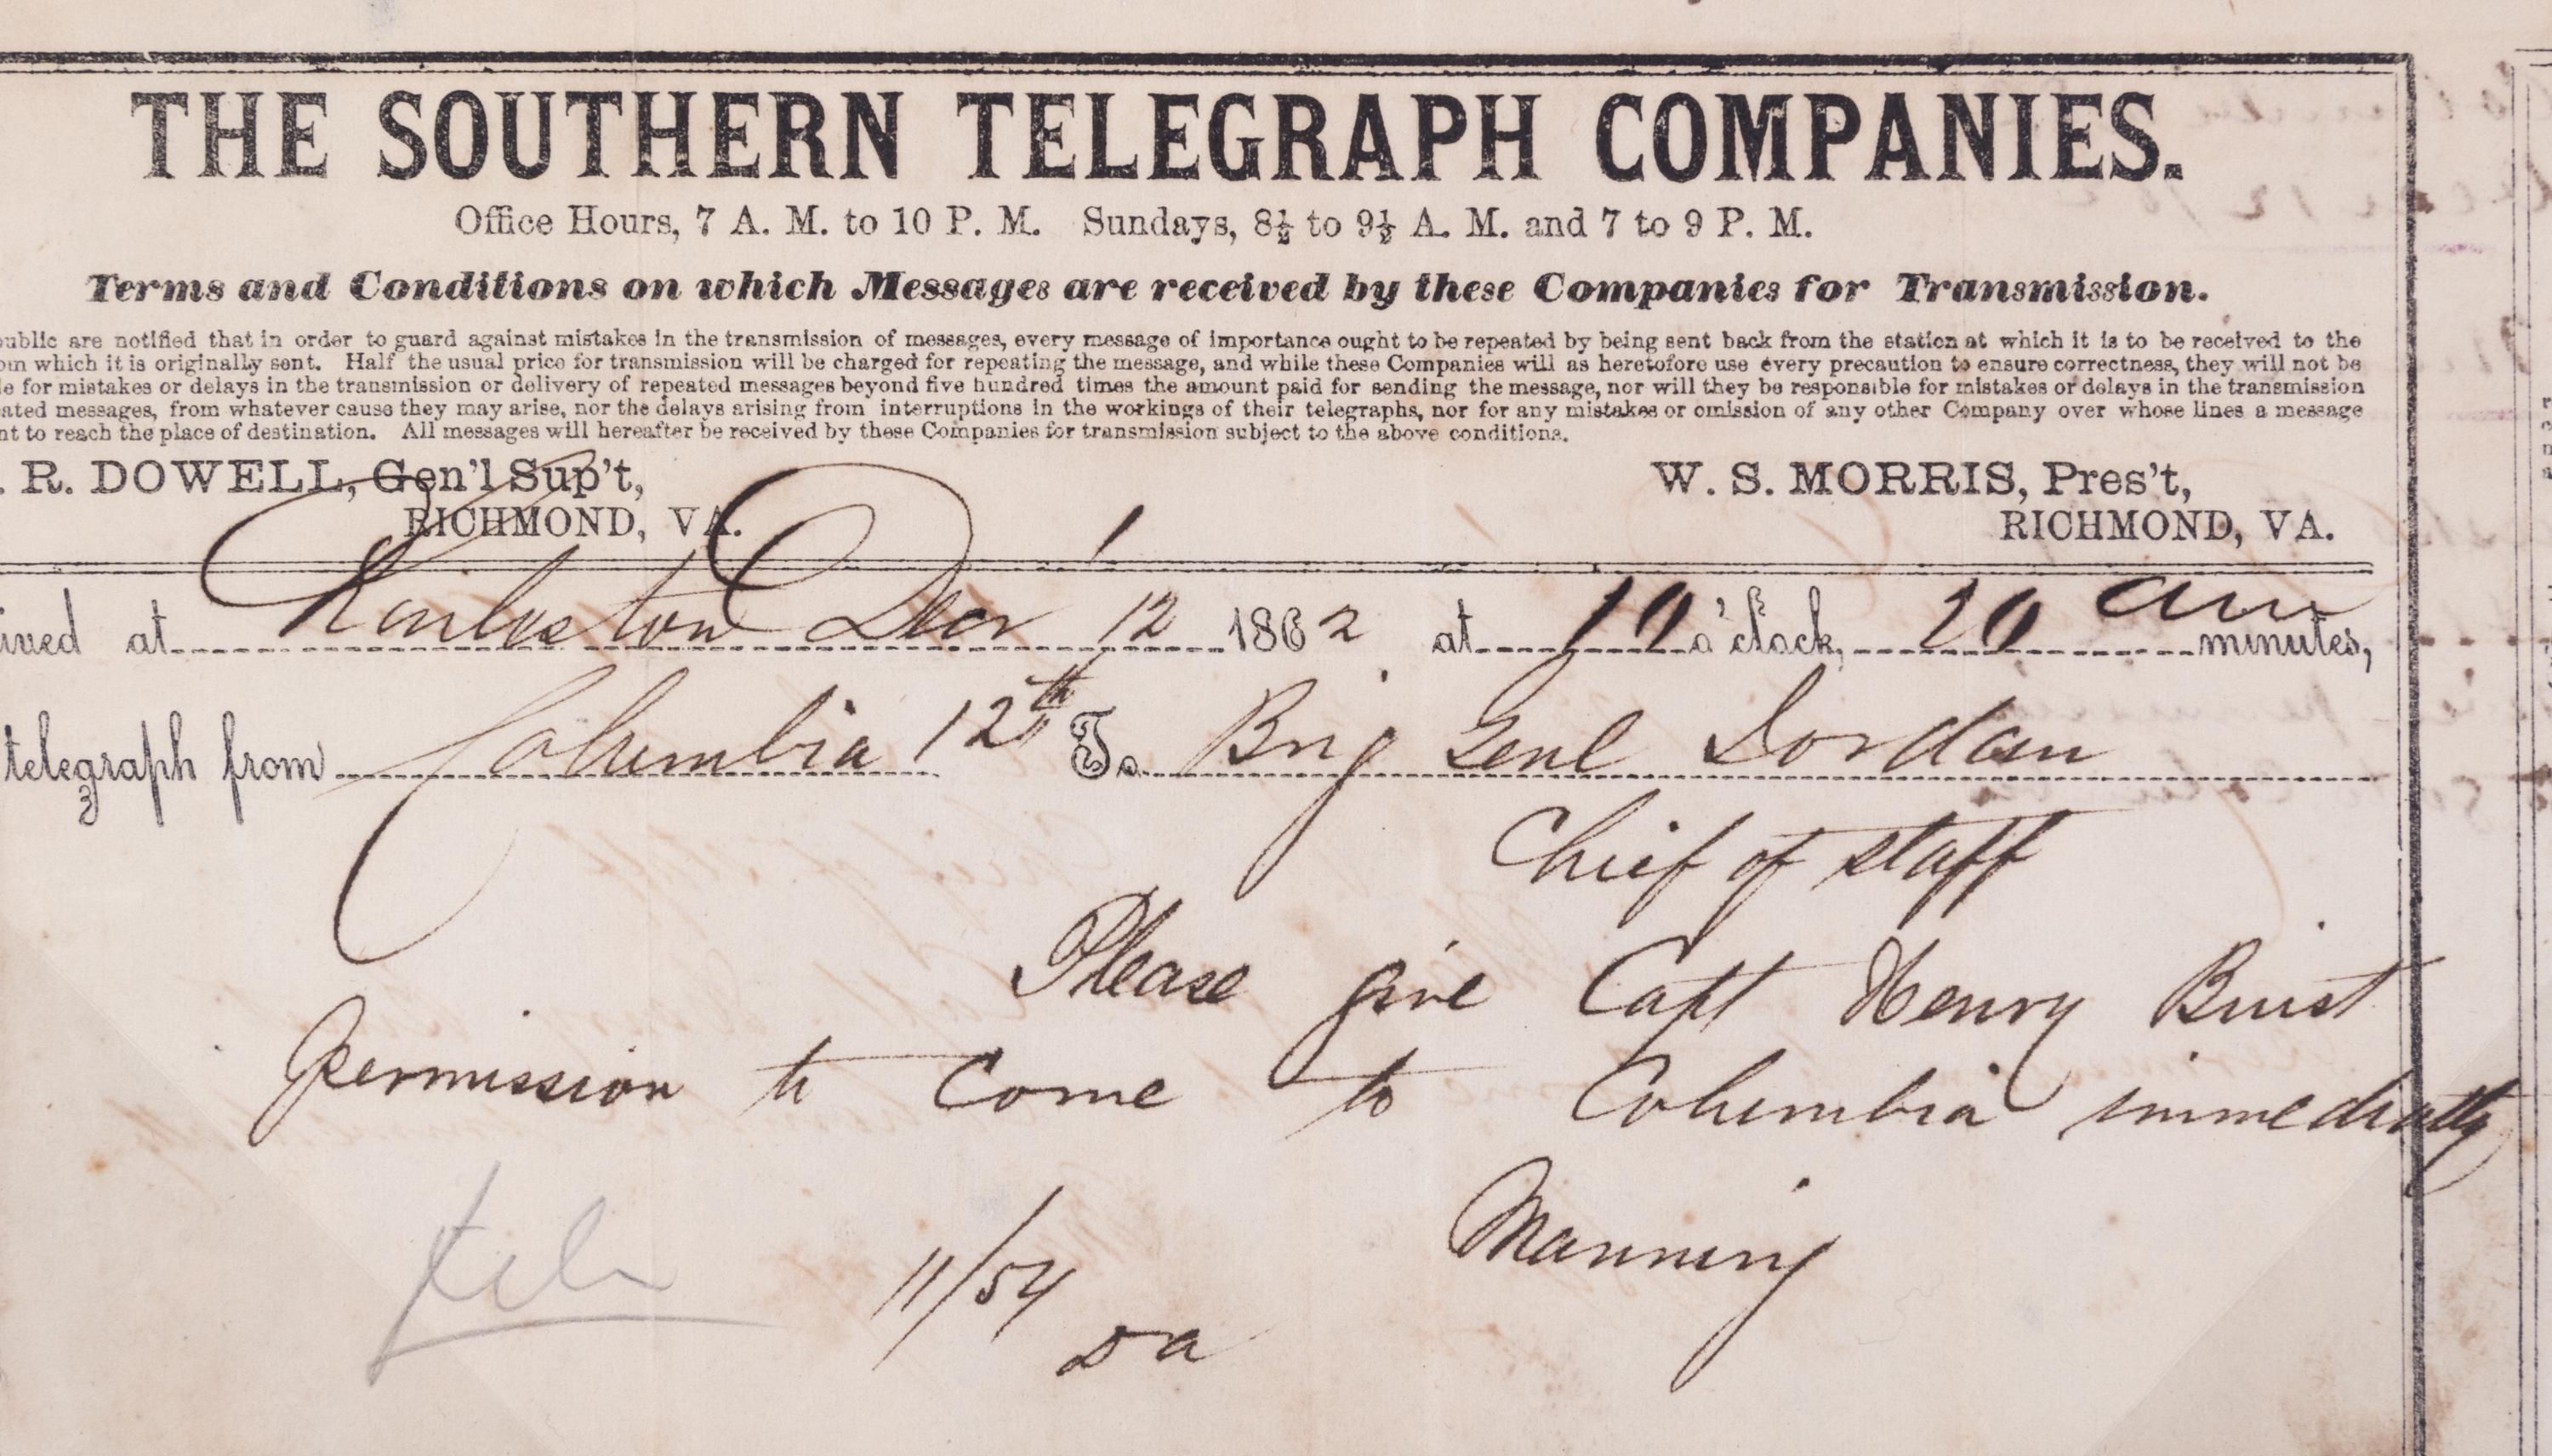 THE SOUTHERN TELEGRAPH COMPANIES.
Office Hours, 7 A. M. to 10 P. M. Sundays, 8½ to 9½ A. M. and 7 to 9 P. M.
Terms and Conditions on which Messages are received by these Companies for Transmission.
public are notified that in order to guard against mistakes in the transmission of messages, every message of importance ought to be repeated by being sent back from the station at which it is to be received to the
om which it is originally sent. Half the usual price for transmission will be charged for repeating the message, and while these Companies will as heretofore use every precaution to ensure correctness, they will not be
le for mistakes or delays in the transmission or delivery of repeated messages beyond five hundred times the amount paid for sending the message, nor will they be responsible for mistakes or delays in the transmission
ated messages, from whatever cause they may arise, nor the delays arising from interruptions in the workings of their telegraphs, nor for any mistakes or omission of any other Company over whose lines a message
nt to reach the place of destination. All messages will hereafter be received by these Companies for transmission subject to the above conditions.
. R. DOWELL, Gen'l Sup't,
RICHMOND, VA.
W. S. MORRIS, Pres't,
RICHMOND, VA.
ived at Charleston Decr 12 1862 at 10 o'clock, 20 am minutes,
telegraph from Columbia 12th To Brig Genl Jordan
Chief of staff
Please give Capt Henry Buist
permission to come to Columbia immediatly
Manning
11/54